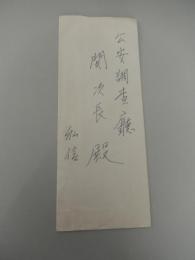 公安調査廳
関次長殿
私信